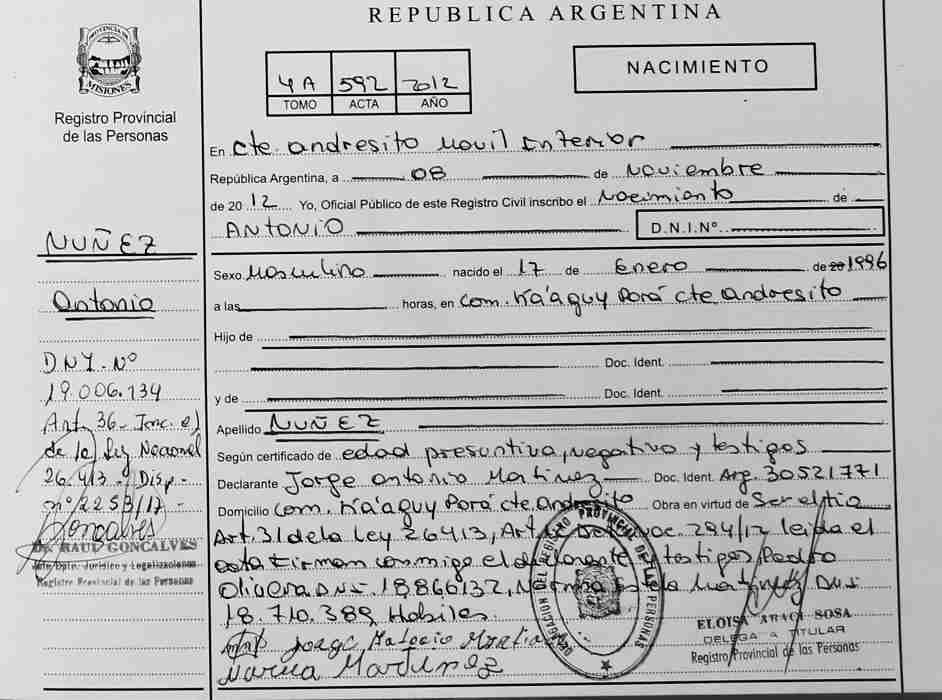 REPUBLICA ARGENTINA
PROVINCIA DE
MISIONES
Registro Provincial
de las Personas
4A 592 2012
TOMO ACTA AÑO
NACIMIENTO
En Cte. andresito Movil Interior
República Argentina, a 08 de Noviembre
de 2012 Yo, Oficial Público de este Registro Civil inscribo el Nacimiento de
ANTONIO D.N.I.Nº
Sexo Masculino nacido el 17 de Enero de 20 1996
a las horas, en Com. Ka'aguy Porá cte andresito
Hijo de
Doc. Ident.
y de Doc. Ident.
Apellido NUÑEZ
Según certificado de edad presuntiva, negativo y testigos
Declarante Jorge antonio Martinez Doc. Ident. Arg. 30521771
Domicilio Com. Ka'aguy Porá cte andresito Obra en virtud de Ser el tio
Art. 31 de la Ley 26413, Art. 294/12 leida el
acta Firman conmigo el declarante testigos Pedro
Olivera DNI. 18.860132, Martinez DNI
18.710.389 Habiles.
Jorge
Maria Martinez
DELEGACION DEL REGISTRO PROVINCIAL DE LAS PERSONAS
ELOISA ARACI SOSA
DELEGADA TITULAR
Registro Provincial de las Personas
NUÑEZ
Antonio
DNI. Nº
19.006.134
Art. 36 - Inc. e)
de la Ley Nacional
26.413 - Disp. -
nº 2253/17 -
Goncalves
Dr. RAUL GONCALVES
Jefe Dpto. Jurídico y Legalizaciones
Registro Provincial de las Personas